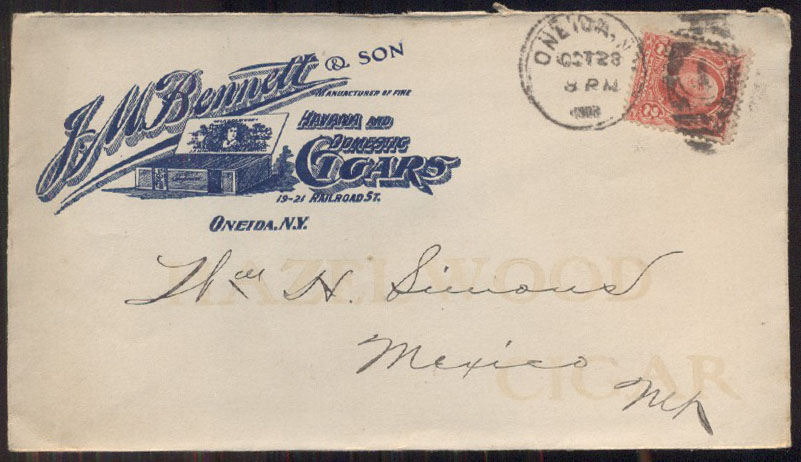 J. M. Bennett & SON
MANUFACTURER OF FINE
HAVANA AND
DOMESTIC
CIGARS
19-21 RAILROAD ST.
ONEIDA, N.Y.
ONEIDA, N.
OCT 28
8 PM
Wm H. Simons
Mexico
NY
HAZELWOOD
CIGAR